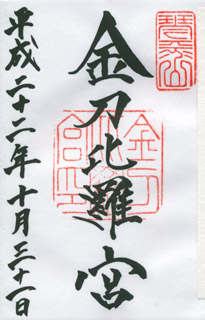 金刀比羅宮
平成二十二年十月三十一日